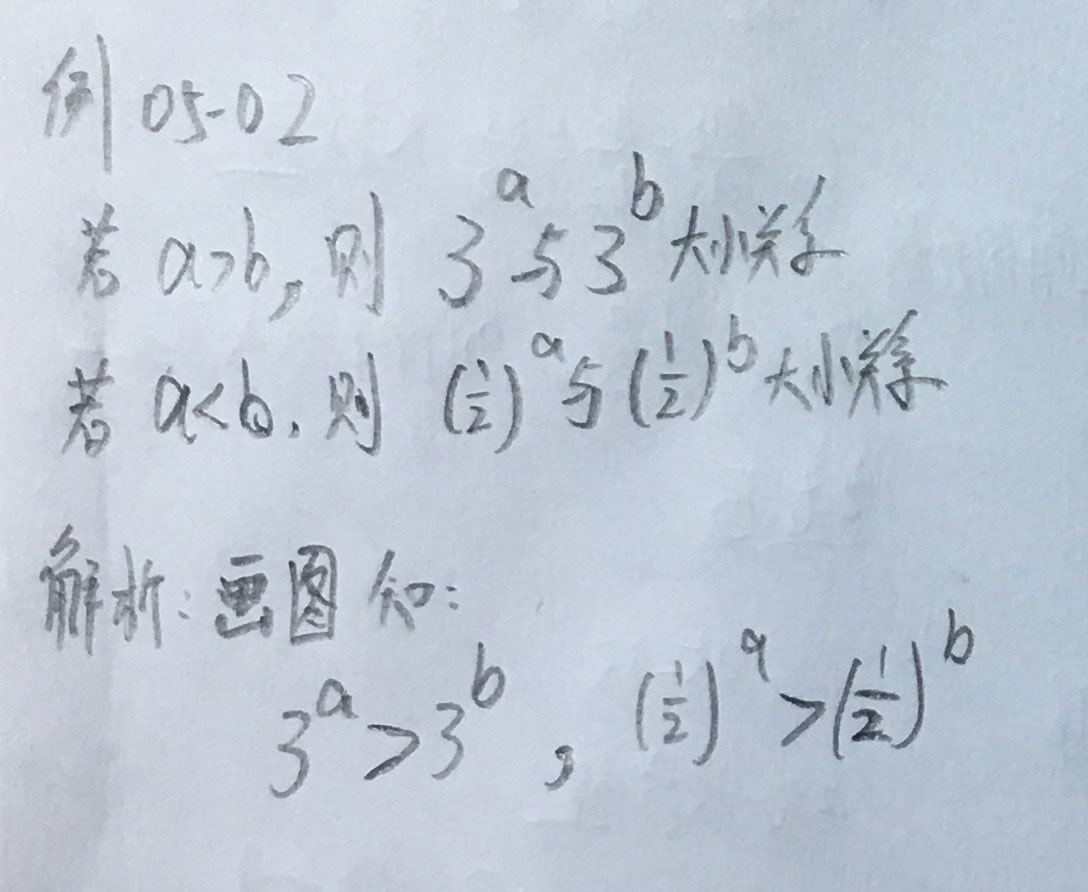 例 05-02
若 a>b, 则 3^a 与 3^b 大小关系
若 a<b, 则 (1/2)^a 与 (1/2)^b 大小关系
解析: 画图知:
3^a > 3^b , (1/2)^a > (1/2)^b